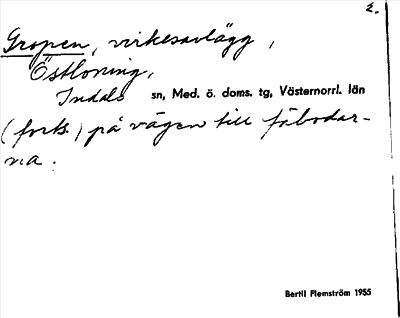 E.
Gropen, virkesavlägg,
Östloning,
Indals sn, Med. ö. doms. tg, Västernorrl. län
(forts.) på vägen till fäbodar-
na.
Bertil Flemström 1955